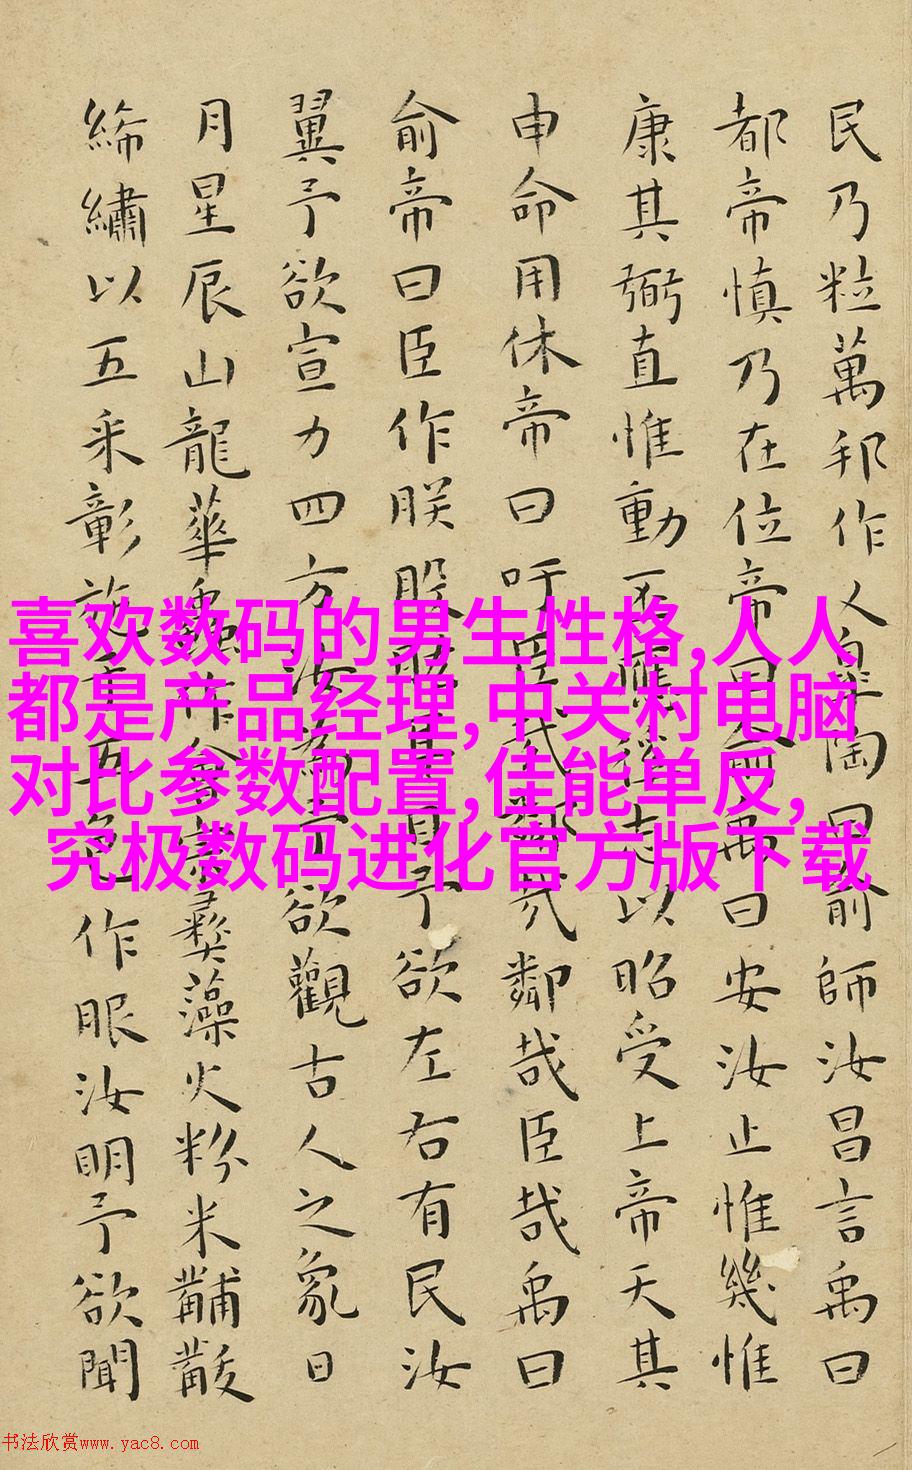 民乃粒萬邦作乂皋陶曰俞師汝昌言禹曰
都帝慎乃在位帝曰俞禹曰安汝止惟幾惟
康其弼直惟動丕應徯志以昭受上帝天其
申命用休帝曰吁臣哉鄰哉鄰哉臣哉禹曰
俞帝曰臣作朕股肱耳目予欲左右有民汝
翼予欲宣力四方汝為予欲觀古人之象日
月星辰山龍華蟲作會宗彝藻火粉米黼黻
絺繡以五采彰施于五色作服汝明予欲聞
喜欢数码的男生性格,人人
都是产品经理,中关村电脑
对比参数配置,佳能单反,
究极数码进化官方版下载
书法欣赏www.yac8.com